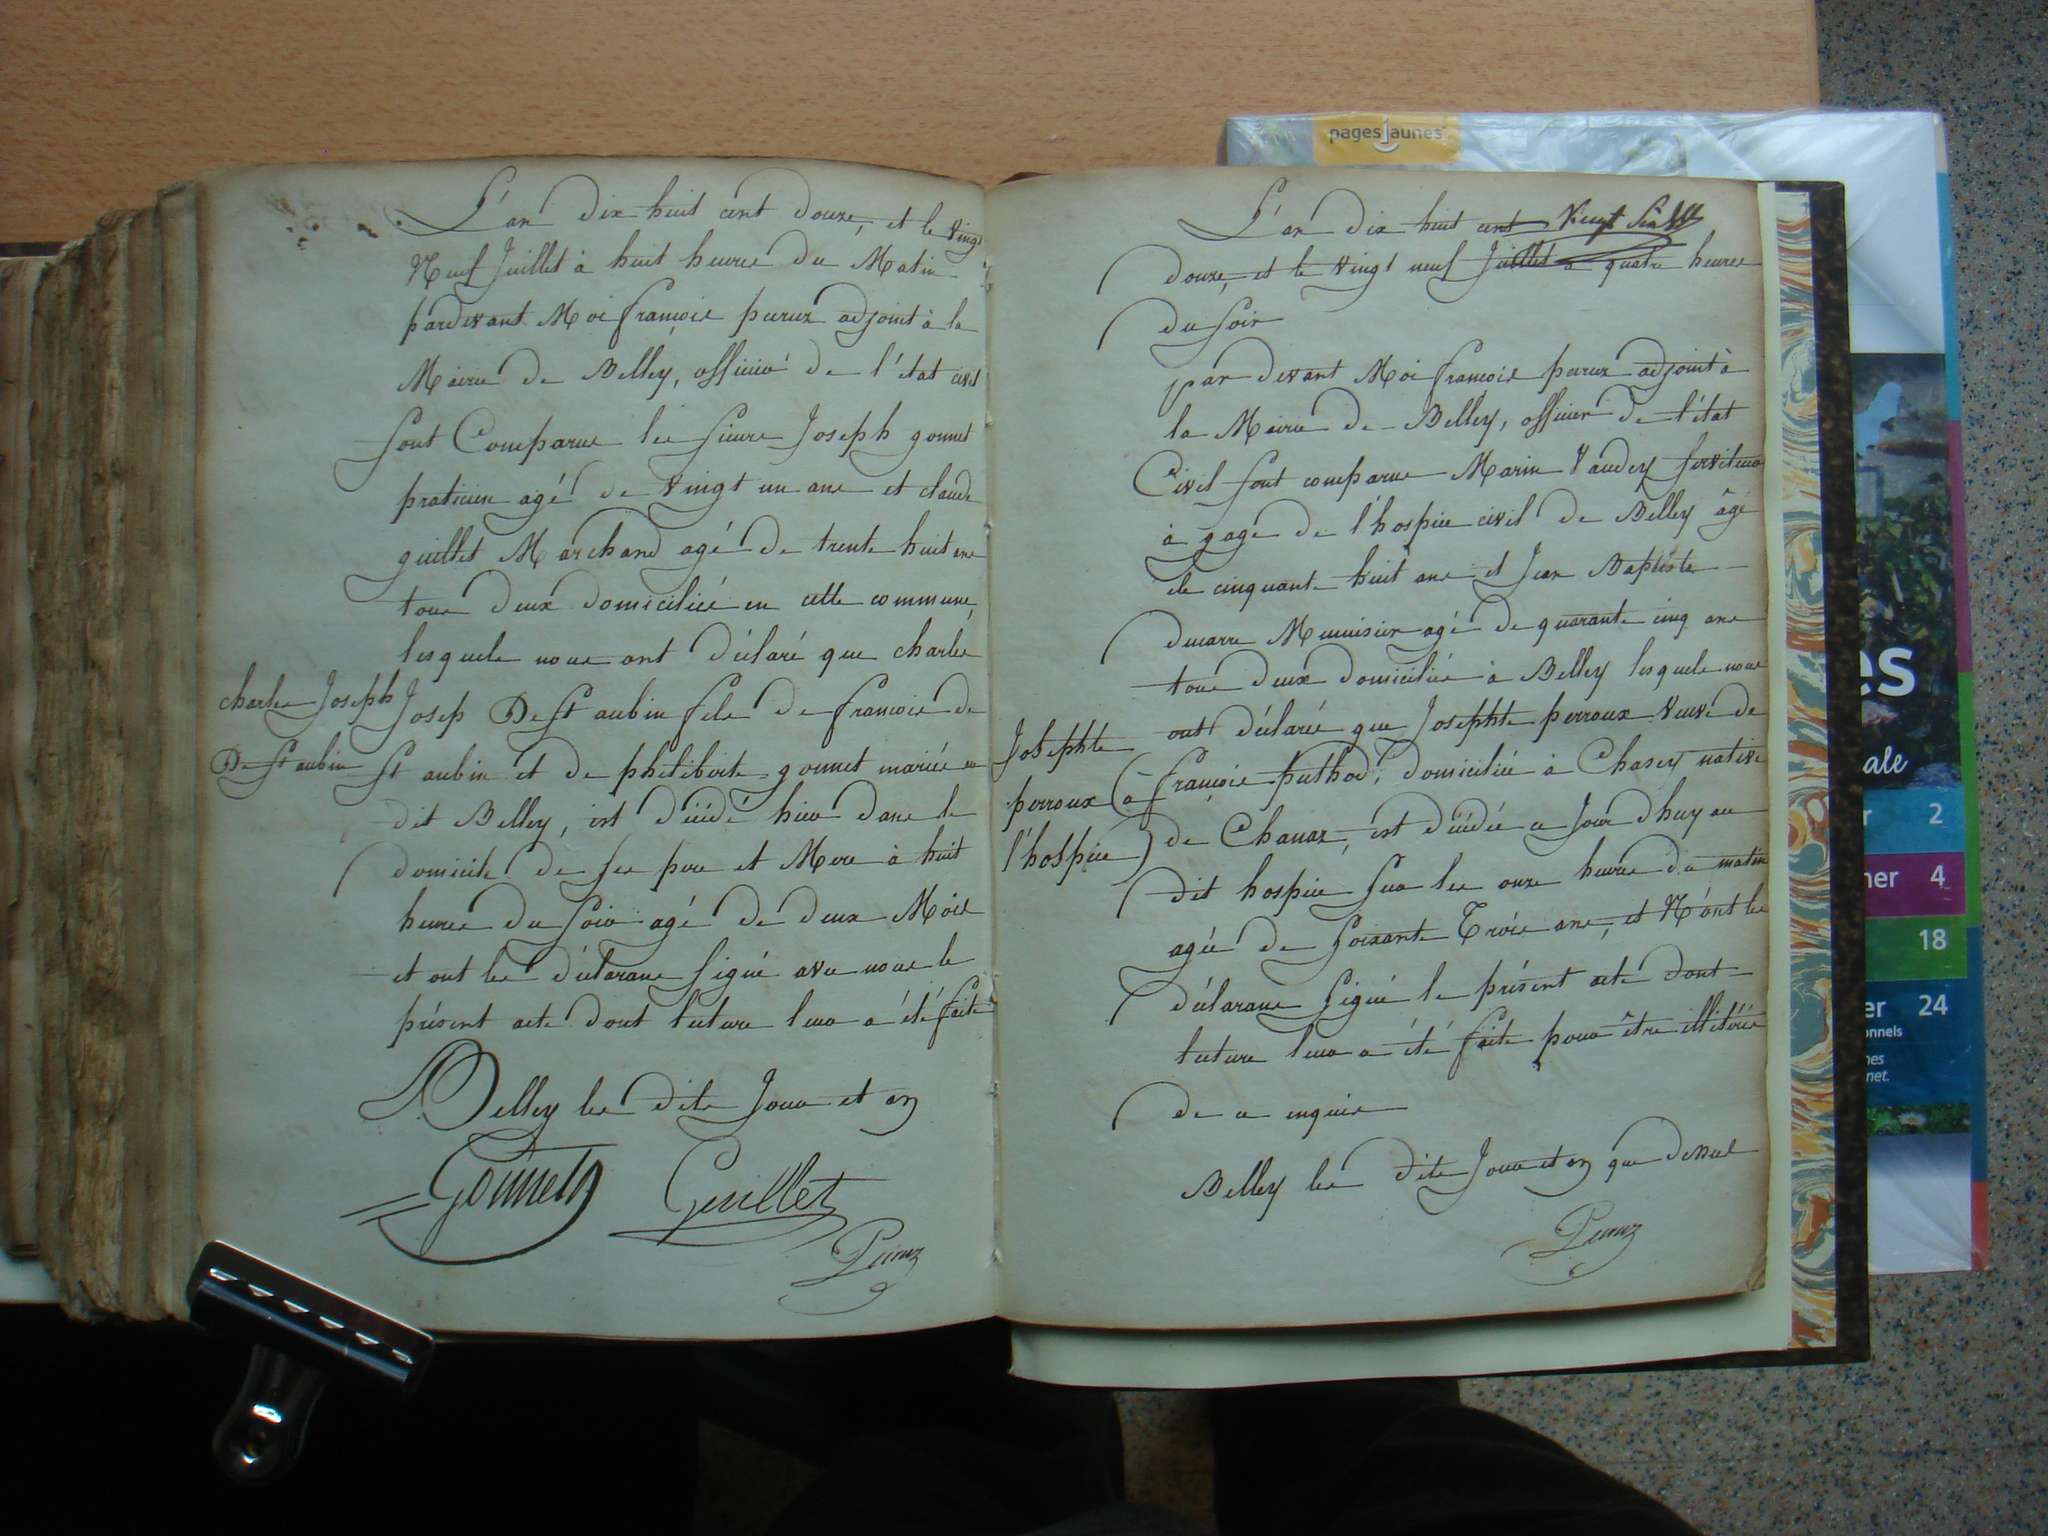 L'an dix huit cent douze, et le vingt
Neuf Juillet à huit heures du Matin
pardevant Moi françois peruz adjoint à la
Mairie de Belley, officier de l'état civil
sont Comparus les sieurs Joseph gonnet
praticien agé de vingt un ans et claude
guillet Marchand agé de trente huit ans
tous deux domiciliés en cette commune,
lesquels nous ont déclaré que charles
charles Joseph
De St aubin
Josep De St aubin fils de francois de
St aubin et de philiberte gonnet mariés au
dit Belley, est décédé hier dans le
domicile de ses pere et Mere à huit
heures du soir agé de deux Mois
et ont les déclarans signé avec nous le
présent acte dont lecture leur a été faite
A Belley les dits Jour et an
Gonnet
Guillet
Peruz
L'an dix huit cent
douze, et le vingt neuf Juillet à quatre heures
du soir
par devant Moi françois peruz adjoint à
la Mairie de Belley, officier de l'état
Civil sont comparus Marin Vaudey serviteur
à gage de l'hospice civil de Belley âgé
de cinquante huit ans et Jean Baptiste
ducarre Menuisier agé de quarante cinq ans
tous deux domiciliés à Belley lesquels nous
ont déclarés que Josephte perroux veuve de
Josephte
perroux (à
l'hospice)
françois puthod, domiciliée à Chasey native
de Chanaz, est décédée ce Jour d'huy au
dit hospice sur les onze heures du matin
agée de soixante Trois ans, et N'ont les
déclarans signé le présent acte dont
lecture leur a été faite pour être illitérés
de ce enquis
Belley les dits Jour et an que dessus
Peruz
pagesjaunes
es
ale
2
ner 4
18
er 24
onnels
nes
net.